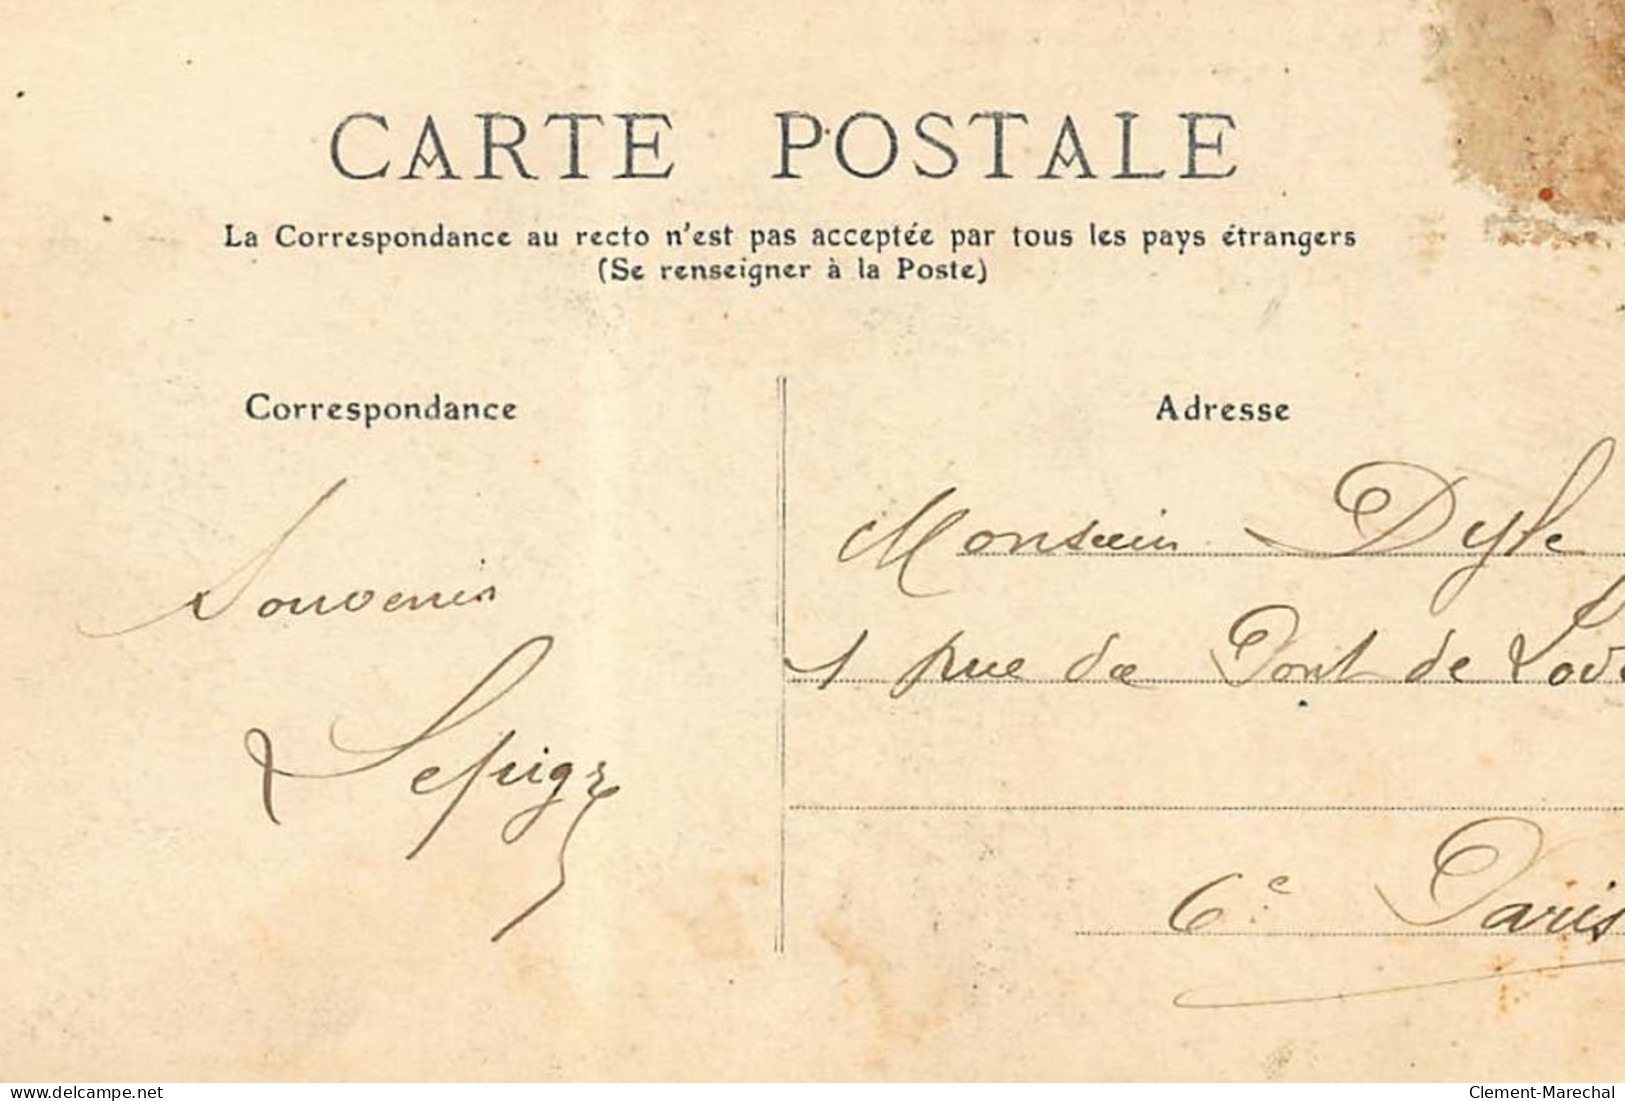 CARTE POSTALE
La Correspondance au recto n'est pas acceptée par tous les pays étrangers
(Se renseigner à la Poste)
Correspondance
Adresse
Souvenir
Monsieur Dyle
1 rue de Pont de Lod
6e Paris
delcampe.net
Clement-Marechal